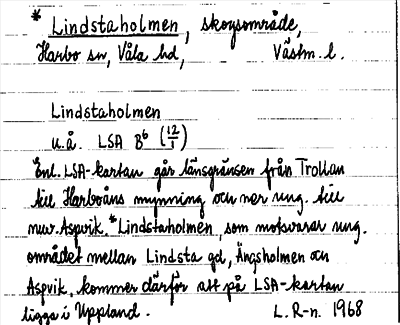 * Lindstaholmen, skogsområde,
Harbo sn, Våla hd, Västm. l.
Lindstaholmen
u.å. LSA B⁶ (12/1)
Enl. LSA-kartan går länsgränsen från Trollan
till Harboåns mynning och ner ung. till
nuv. Aspvik. *Lindstaholmen, som motsvarar ung.
området mellan Lindsta gd, Ängsholmen och
Aspvik, kommer därför att på LSA-kartan
ligga i Uppland. L. R-n. 1968